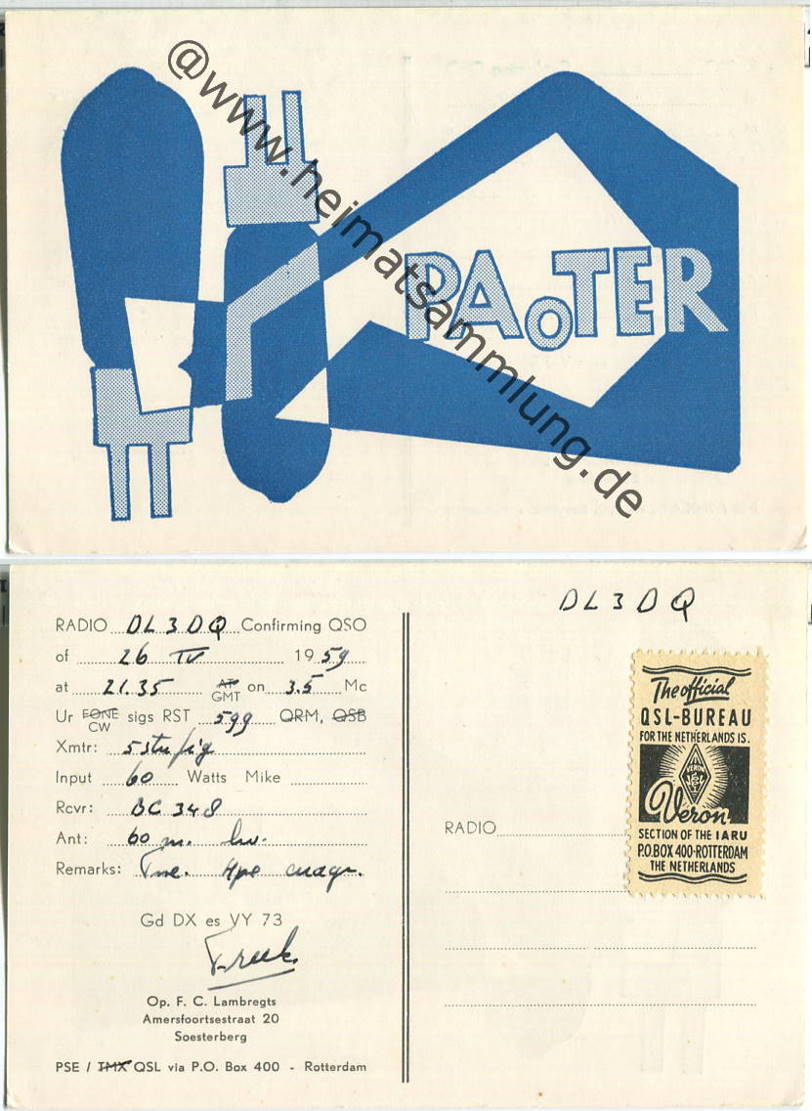 @www.heimatsammlung.de
PAoTER
DL3DQ
RADIO DL3DQ Confirming QSO
of 26 IV 1959
at 21.35 AT GMT on 3.5 Mc
Ur FONE CW sigs RST 599 QRM, QSB
Xmtr: 5
Input 60 Watts Mike
Rcvr: BC 348
Ant: 60 m.
Remarks: Tnx. Hpe cuagn.
Gd DX es VY 73
Freek
Op. F. C. Lambregts
Amersfoortsestraat 20
Soesterberg
PSE / TMX QSL via P.O. Box 400 - Rotterdam
The official
QSL-BUREAU
FOR THE NETHERLANDS IS.
Veron
SECTION OF THE IARU
P.O.BOX 400-ROTTERDAM
THE NETHERLANDS
RADIO